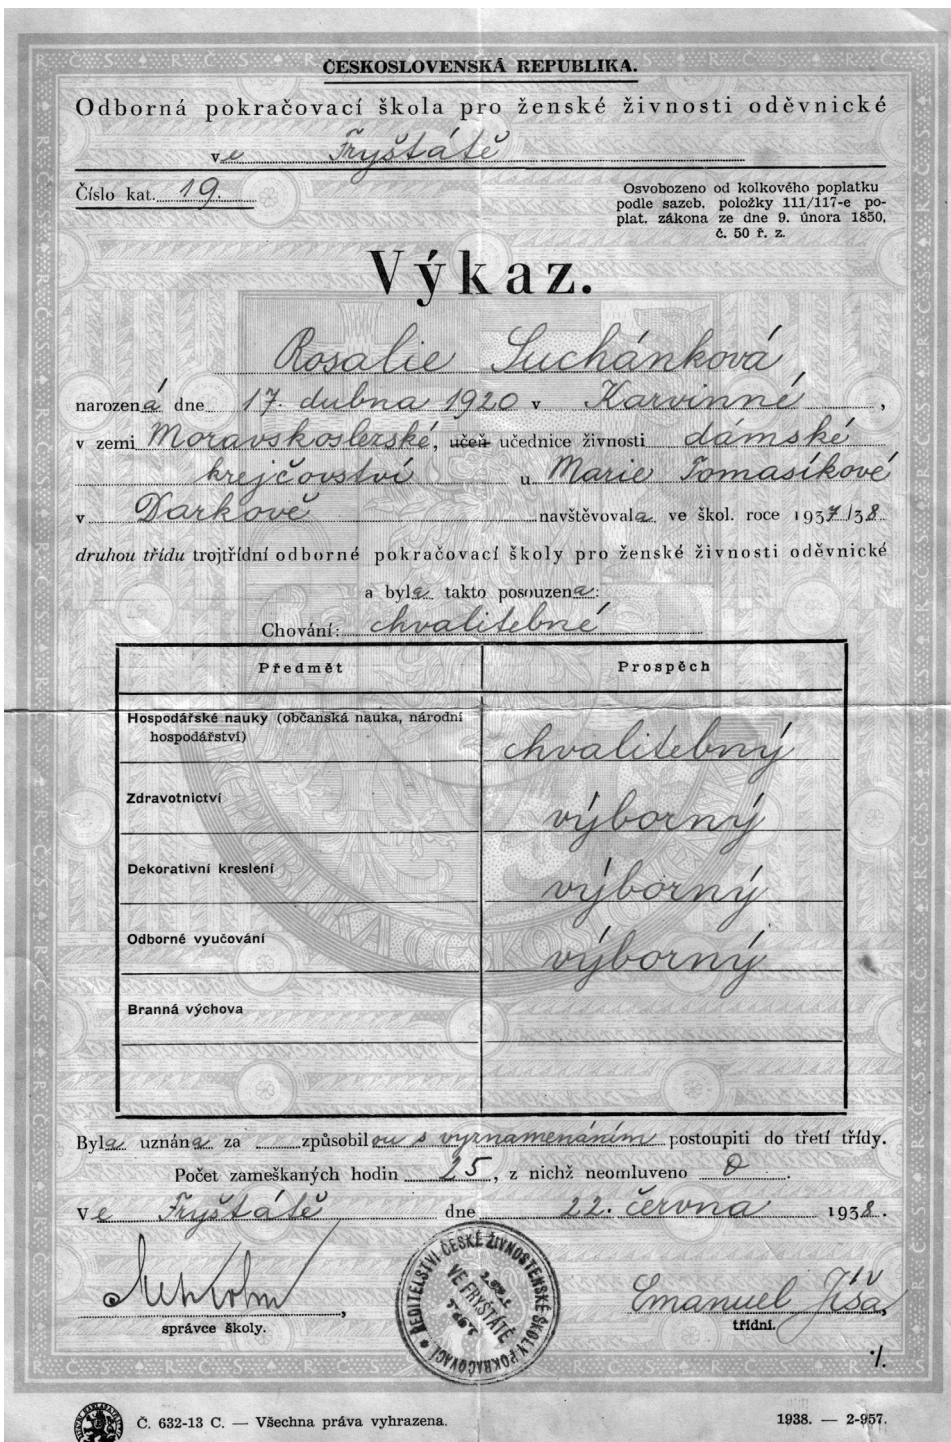 ČESKOSLOVENSKÁ REPUBLIKA.
Odborná pokračovací škola pro ženské živnosti oděvnické
ve Fryštátě
Číslo kat. 19.
Osvobozeno od kolkového poplatku
podle sazeb. položky 111/117-e po-
plat. zákona ze dne 9. února 1850,
č. 50 ř. z.
Výkaz.
Rosalie Suchánková
narozená dne 17. dubna 1920 v Karvinné,
v zemi Moravskoslezské, učeň učednice živnosti dámské
krejčovství u Marie Tomasíkové
v Darkově navštěvovala ve škol. roce 1937/38
druhou třídu trojtřídní odborné pokračovací školy pro ženské živnosti oděvnické
a byla takto posouzena:
Chování: chvalitebné
Předmět Prospěch
Hospodářské nauky (občanská nauka, národní
hospodářství) chvalitebný
Zdravotnictví výborný
Dekorativní kreslení výborný
Odborné vyučování výborný
Branná výchova
Byla uznána za způsobilou s vyznamenáním postoupiti do třetí třídy.
Počet zameškaných hodin 25, z nichž neomluveno 0.
Ve Fryštátě dne 22. června 1938.
správce školy.
ŘEDITELSTVÍ ČESKÉ ŽIVNOSTENSKÉ ŠKOLY POKRAČOVACÍ
VE FRYŠTÁTĚ
Emanuel Jíša,
třídní.
%.
Č. 632-13 C. — Všechna práva vyhrazena.
1938. — 2-957.